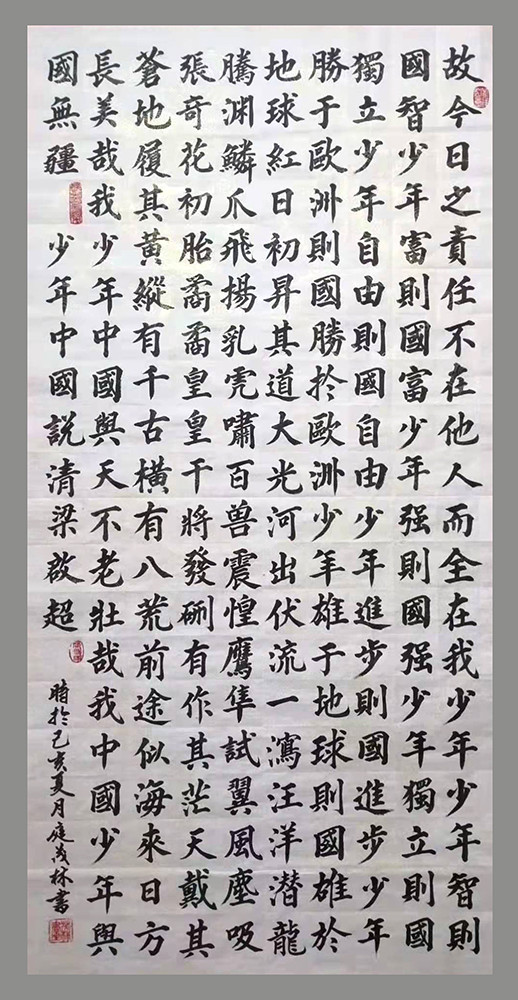 故今日之責任不在他人而全在我少年少年智則
國智少年富則國富少年强則國强少年獨立則國
獨立少年自由則國自由少年進步則國進步少年
勝于歐洲則國勝於歐洲少年雄于地球則國雄於
地球紅日初昇其道大光河出伏流一瀉汪洋潜龍
騰渊鱗爪飛揚乳虎嘯百兽震惶鷹隼試翼風塵吸
張奇花初胎矞矞皇皇干將發硎有作其茫天戴其
蒼地履其黃縱有千古橫有八荒前途似海來日方
長美哉我少年中國與天不老壯哉我中國少年與
國無疆 少年中國説清梁啟超
時於己亥夏月庭茂林書